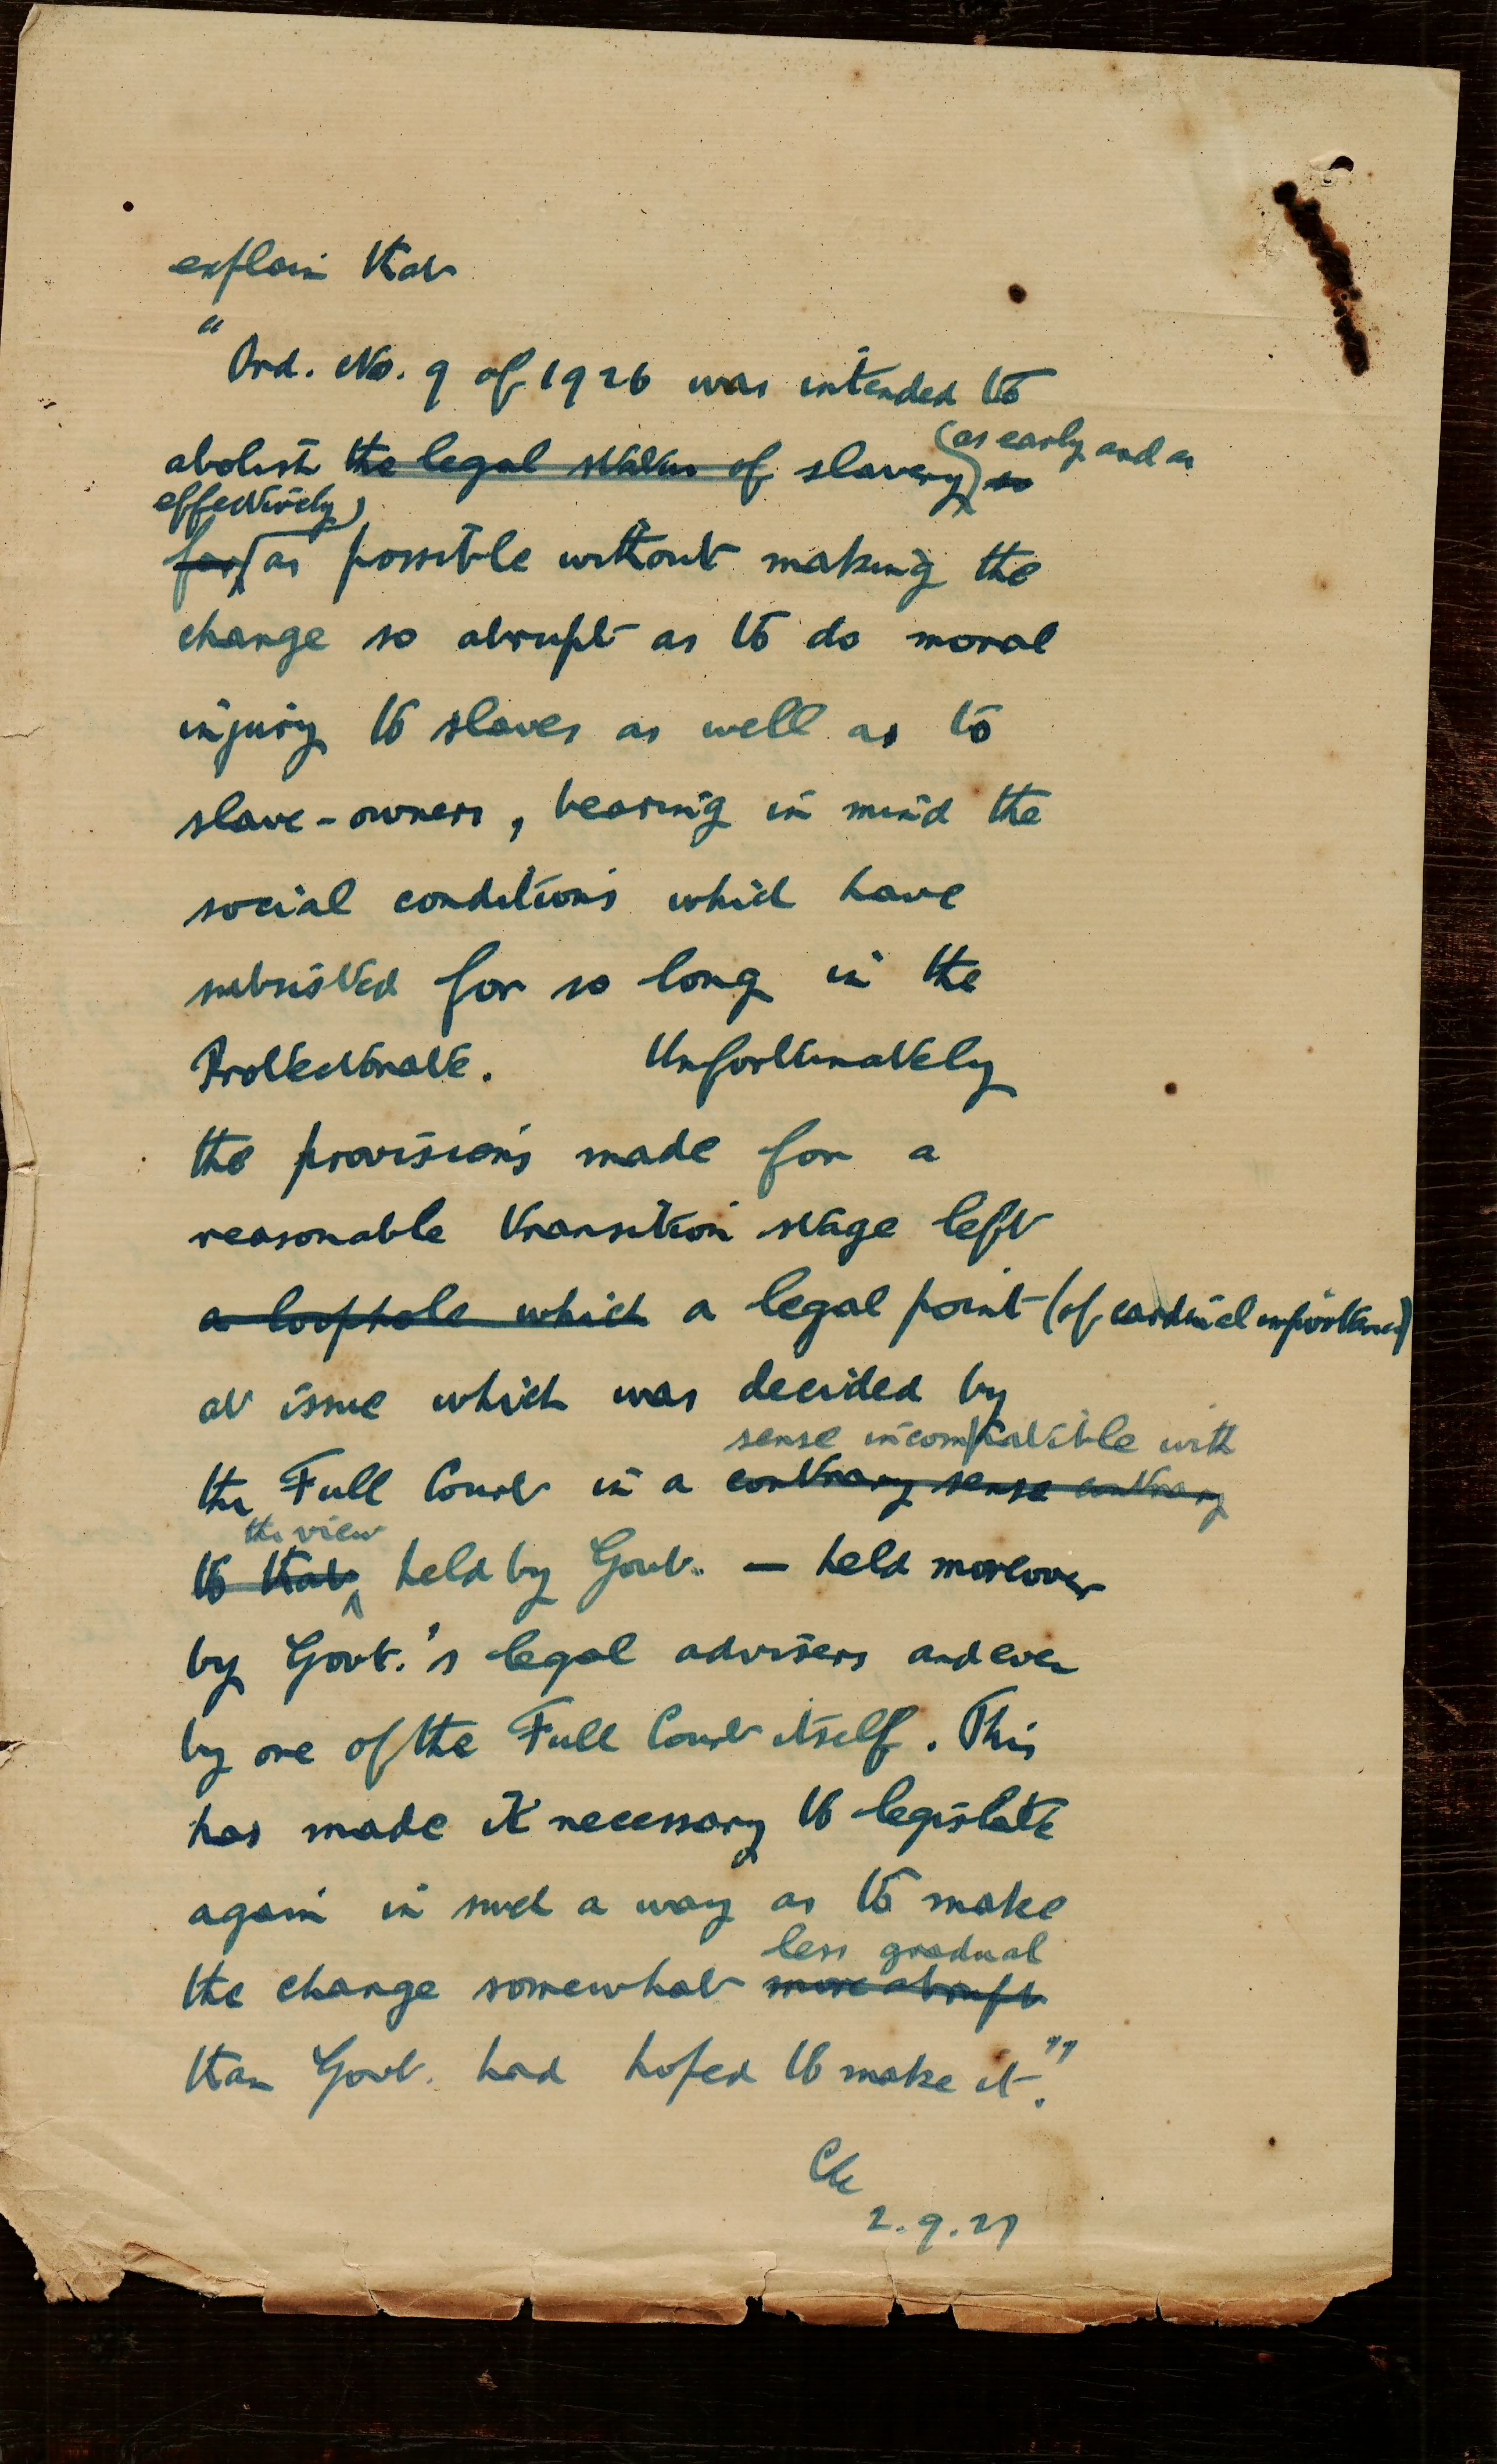 explain that
"Ord. No. 9 of 1926 was intended to
abolish the legal status of slavery (as early and as so
effectively)
far as possible without making the
change so abrupt as to do moral
injury to slaves as well as to
slave-owners, bearing in mind the
social conditions which have
subsisted for so long in the
Protectorate. Unfortunately
the provisions made for a
reasonable transition stage left
a loophole which a legal point (of cardinal importance)
at issue which was decided by
sense incompatible with
the Full Court in a contrary sense contrary
the view
to that held by Govt. — held moreover
by Govt.'s legal advisers and even
by one of the Full Court itself. This
has made it necessary to legislate
again in such a way as to make
less gradual
the change somewhat more abrupt
than Govt. had hoped to make it."
2.9.27